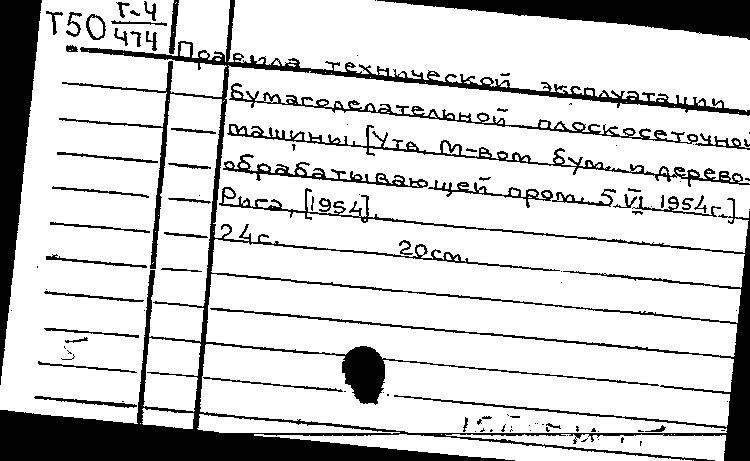 Т50 Г-4/474
Правила технической эксплуатации
бумагоделательной плоскосеточной
машины. [Утв. М-вом бум. и дерево-
обрабатывающей пром. 5.VI 1954г.]
Рига, [1954].
24с. 20см.
5